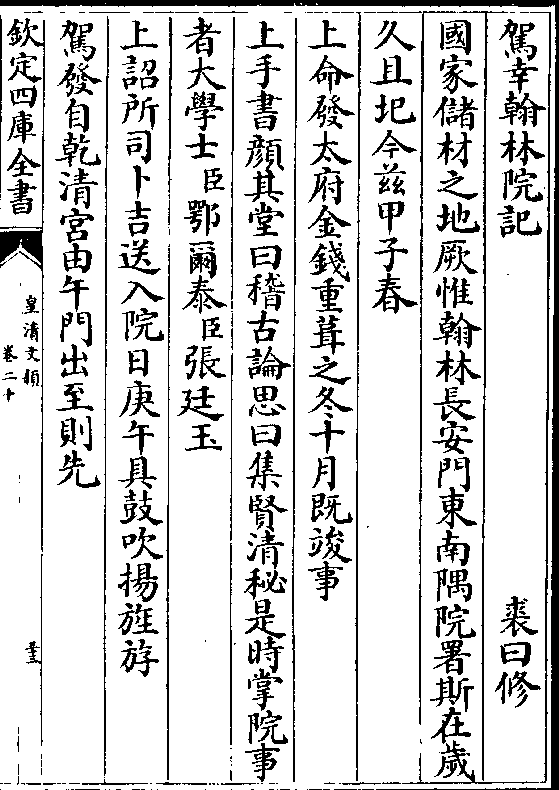 駕幸翰林院記 裘曰修
國家儲材之地厥惟翰林長安門東南隅院署斯在歲
久且圮今茲甲子春
上命發太府金錢重葺之冬十月既竣事
上手書顔其堂曰稽古論思曰集賢清秘是時掌院事
者大學士臣鄂爾泰臣張廷玉
上詔所司卜吉送入院日庚午具鼓吹揚旌斿
駕發自乾清宮由午門出至則先
欽定四庫全書
皇清文頴
卷二十